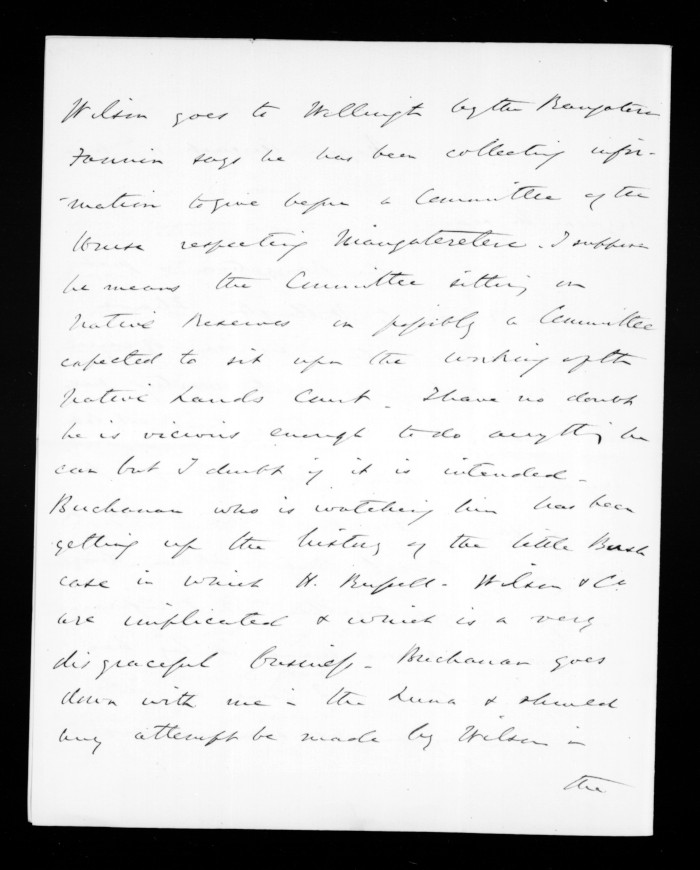 Wilson goes to Wellingtn by the Rangatira
Fannin says he has been collecting infor-
-mation to give before a Committee of the
House respecting Mangateretere. I suppose
he means the Committee sitting on
Native Reserves or possibly a Committee
expected to sit upon the working of the
Native Lands Court. I have no doubt
he is vicious enough to do anything he
can but I doubt if it is intended -
Buchanan who is watching him has been
getting up the history of the little Bush
case in which H. Russell - Wilson & Co
are implicated & which is a very
disgraceful business - Buchanan goes
down with me in the Luna & should
any attempt be made by Wilson in
the